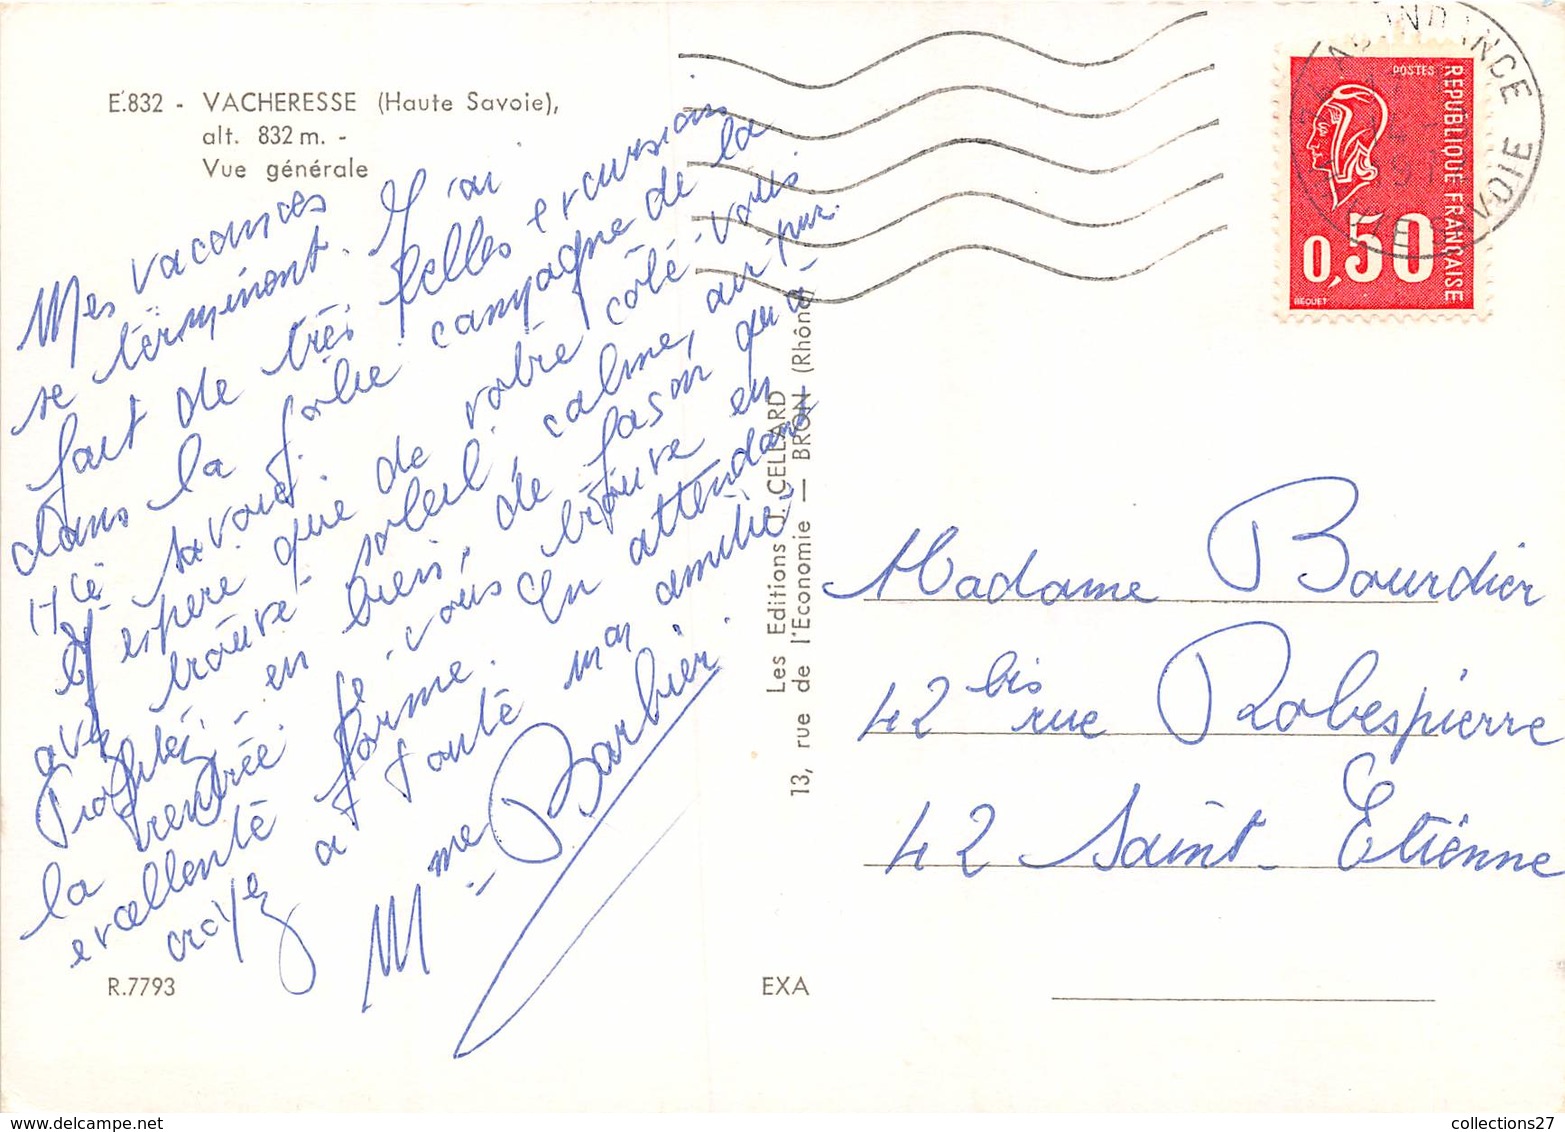 E.832 - VACHERESSE (Haute Savoie),
alt. 832 m. -
Vue générale
Mes vacances
se terminent. J'ai
fait de très belles excursions
dans la jolie campagne de la
Hte savoie.
et espère que de votre côté vous
avez trouvé soleil, calme, air pur.
Profitez en bien, de façon qu'à
la rentrée. Je vous trouve en
excellente forme. En attendant
croyez à toute mon amitié.
Mme Barbier
R.7793
EXA
Les Editions J. CELLARD
13, rue de l'Economie — BRON (Rhône)
ABONDANCE
SAVOIE
POSTES
REPUBLIQUE FRANÇAISE
0,50
BEQUET
Madame Bourdier
42 bis rue Robespierre
42 Saint-Etienne
collections27